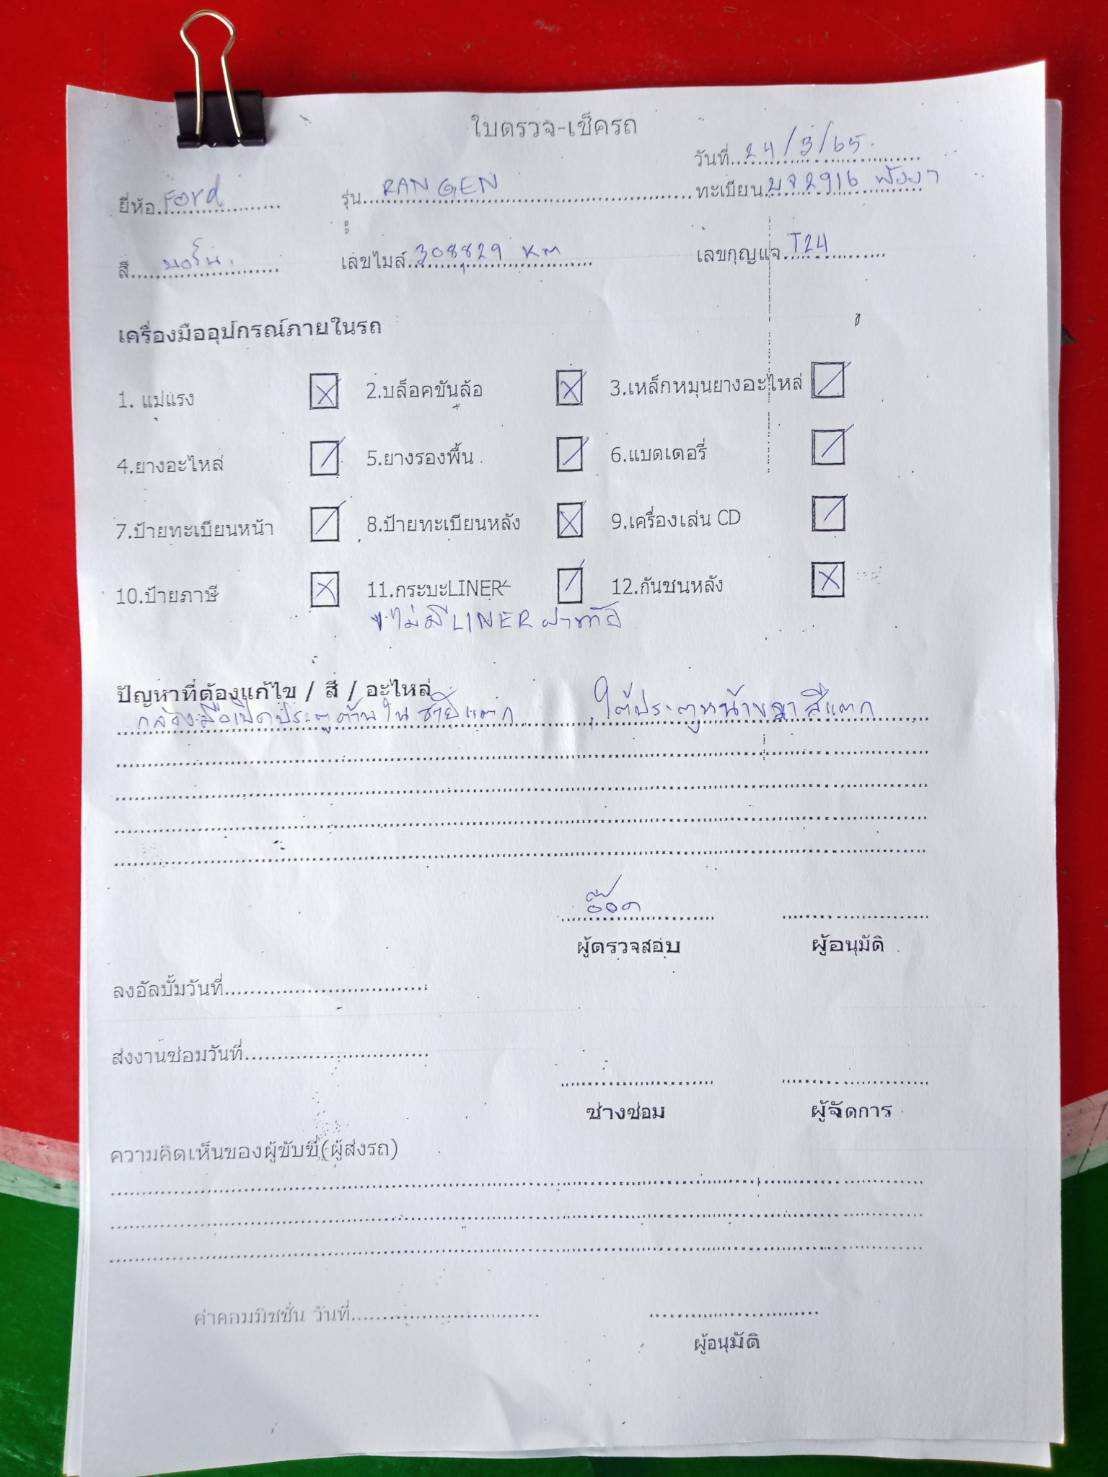 ใบตรวจ-เช็ครถ
วันที่ 24/3/65
ยี่ห้อ Ford รุ่น RANGEN ทะเบียน บจ2916 พังงา
สี เลขไมล์ 308829 KM เลขกุญแจ T24
เครื่องมืออุปกรณ์ภายในรถ
1. แม่แรง ☒ 2.บล็อคขันล้อ ☒ 3.เหล็กหมุนยางอะไหล่ ☑
4.ยางอะไหล่ ☑ 5.ยางรองพื้น ☑ 6.แบตเตอรี่ ☑
7.ป้ายทะเบียนหน้า ☑ 8.ป้ายทะเบียนหลัง ☒ 9.เครื่องเล่น CD ☑
10.ป้ายภาษี ☒ 11.กระบะLINER ☑ 12.กันชนหลัง ☒
ไม่มีLINER ฝาท้าย
ปัญหาที่ต้องแก้ไข / สี / อะไหล่
มือเปิดประตูด้านในซ้ายแตก ใต้ประตูหน้าขวาสีแตก
อ๊อด
ผู้ตรวจสอบ ผู้อนุมัติ
ลงอัลบั้มวันที่
ส่งงานซ่อมวันที่
ช่างซ่อม ผู้จัดการ
ความคิดเห็นของผู้ขับขี่(ผู้ส่งรถ)
ค่าคอมมิชชั่น วันที่
ผู้อนุมัติ